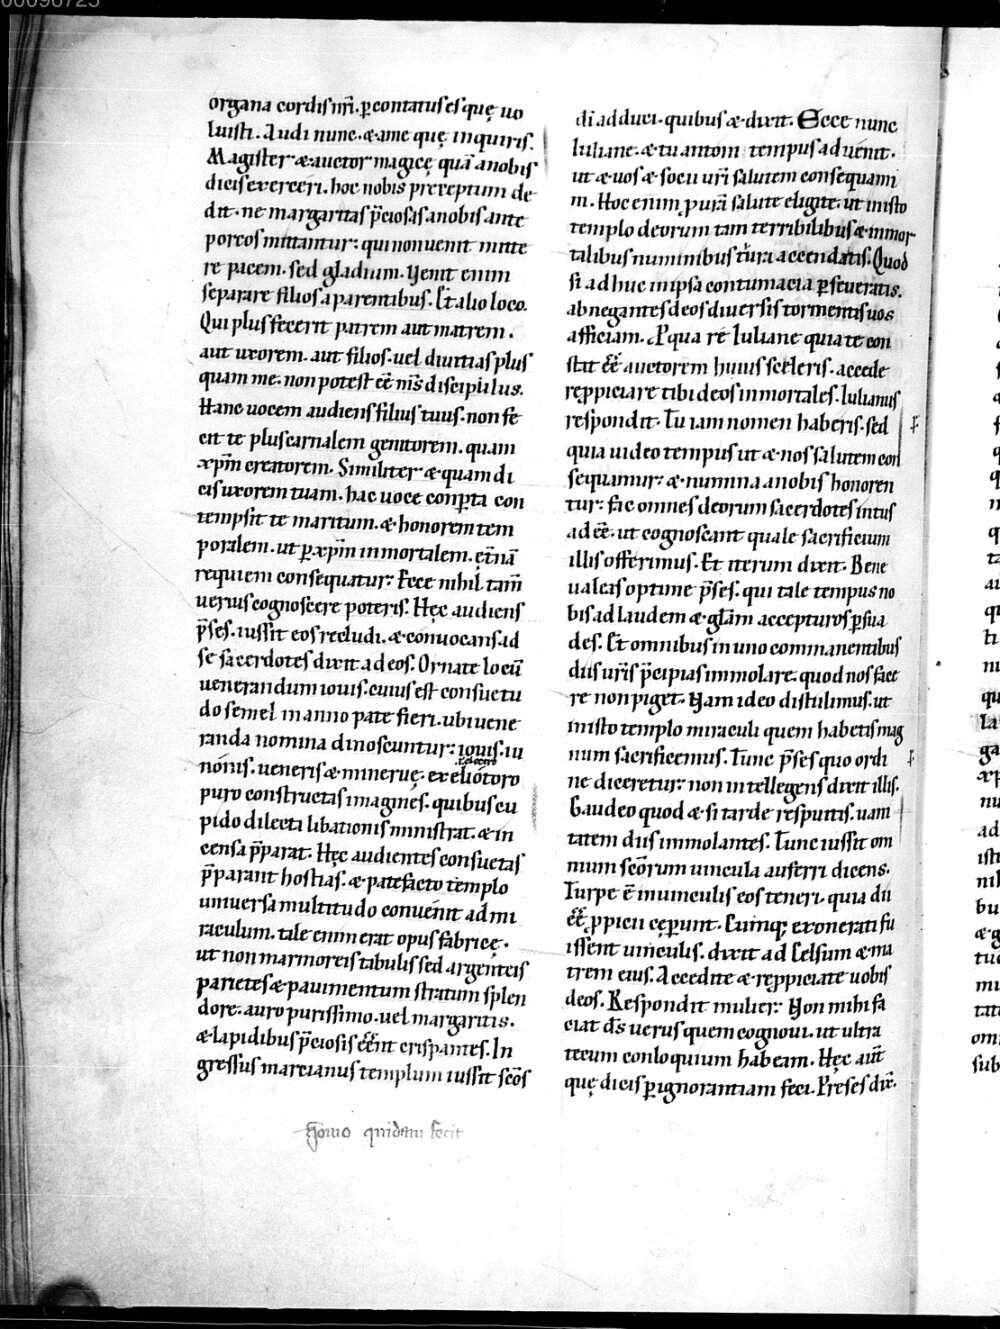 organa cordis nr̄i. ꝑcontatus es quę uo
luisti. Audi nunc. & a me quę inquiris.
Magister & auctor magicę quā a nobis
dicis exerceri. hoc nobis preceptum de
dit. ne margaritas p̄ciosas a nobis ante
porcos mittantur: qui non uenit mitte
re pacem. sed gladium. Venit enim
separare filios a parentibus. Et alio loco.
Qui plus fecerit patrem aut matrem.
aut uxorem. aut filios. uel diuitias plus
quam me. non potest eē m̄s discipulus.
Hanc uocem audiens filius tuus. non fe
cit te plus carnalem genitorem. quam
xp̄m creatorem. Similiter & quam di
cis uxorem tuam. hac uoce conꝑta con
tempsit te maritum. & honorem tem
poralem. ut ꝑ xp̄m inmortalem. et̄nā
requiem consequatur: Ecce nihil tam̄
uerius cognoscere poteris. Hęc audiens
p̄ses. iussit eos recludi. & conuocans ad
se sacerdotes dixit ad eos. Ornate locū
uenerandum iouis. cuius est consuetu
do semel in anno pate fieri. ubi uene
randa nomina dinoscuntur: iouis. iu
nonis. ueneris & mineruę. ex eliotoro
puro constructas imagines. quibus cu
pido dilecti libationis ministrat. & in
censa p̄parat. Hęc audientes consuetas
p̄parant hostias. & patefacto templo
uniuersa multitudo conuenit ad mi
raculum. tale enim erat opus fabricę.
ut non marmoreis tabulis sed argenteis
parietes & pauimentum stratum splen
dore. auro purissimo. uel margaritis.
& lapidibus p̄ciosis eēnt crispantes. In
gressus marcianus templum iussit scōs
homo quidam fecit
di adduci. quibus & dixit. Ecce nunc
Iuliane. & tu antoni tempus aduenit.
ut & uos & socii ur̄i salutem consequami
ni. Hoc enim ꝓ ur̄a salute eligite. ut in isto
templo deorum tam terribilibus & inmor
talibus numinibus tura accendatis. Quod
si ad huc in ipsa contumacia ꝑseueratis.
abnegantes deos diuersis tormentis uos
afficiam. Ꝓ qua re Iuliane quia te con
stit eē auctorem huius sceleris. accede
reppiciare tibi deos inmortales. Iulianus
respondit. Tu iam nomen haberis. sed
quia uideo tempus ut & nos salutem con
sequamur: & numina a nobis honoren
tur: fac omnes deorum sacerdotes intus
adeē. ut cognoscant quale sacrificium
illis offerimus. Et iterum dixit. Bene
ualeas optime p̄ses. qui tale tempus no
bis ad laudem & glam̄ accepturos ꝑsua
des. Et omnibus in uno commanentibus
diis ur̄is p̄cipias immolare. quod nos face
re non piget. Nam ideo distulimus. ut
in isto templo miraculi quem habetis mag
num sacrificemus. Tunc p̄ses quo ordi
ne diceretur: non intellegens dixit illis.
Gaudeo quod & si tarde respuitis. uani
tatem diis immolantes. Tunc iussit om
nium scōrum uincula auferri dicens.
Turpe ē in uinculis eos teneri. quia dii
eē ꝓpicii cęperunt. Cumq; exonerati fu
issent uinculis. dixit ad Celsum & ma
trem eius. Accedite & reppiciate uobis
deos. Respondit mulier: Non mihi fa
ciat ds̄ uerus quem cognoui. ut ultra
tecum conloquium habeam. Hęc aut̄
quę dicis ꝑ ignorantiam feci. Preses dix̄.